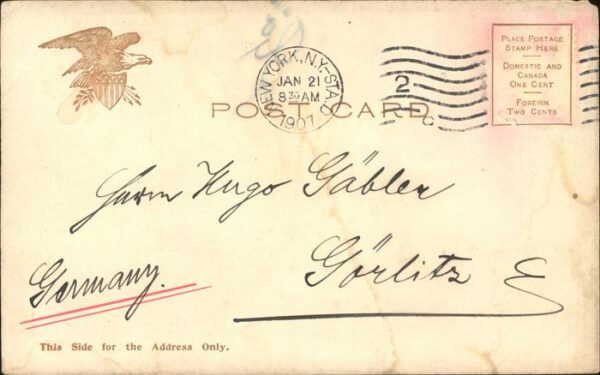 PLACE POSTAGE
STAMP HERE
DOMESTIC AND
CANADA
ONE CENT
FOREIGN
TWO CENTS
NEW YORK, N.Y. STA. O
JAN 21
8 30 AM
1907
2
C
POST CARD
Herrn Hugo Gäbler
Görlitz
Germany.
This Side for the Address Only.